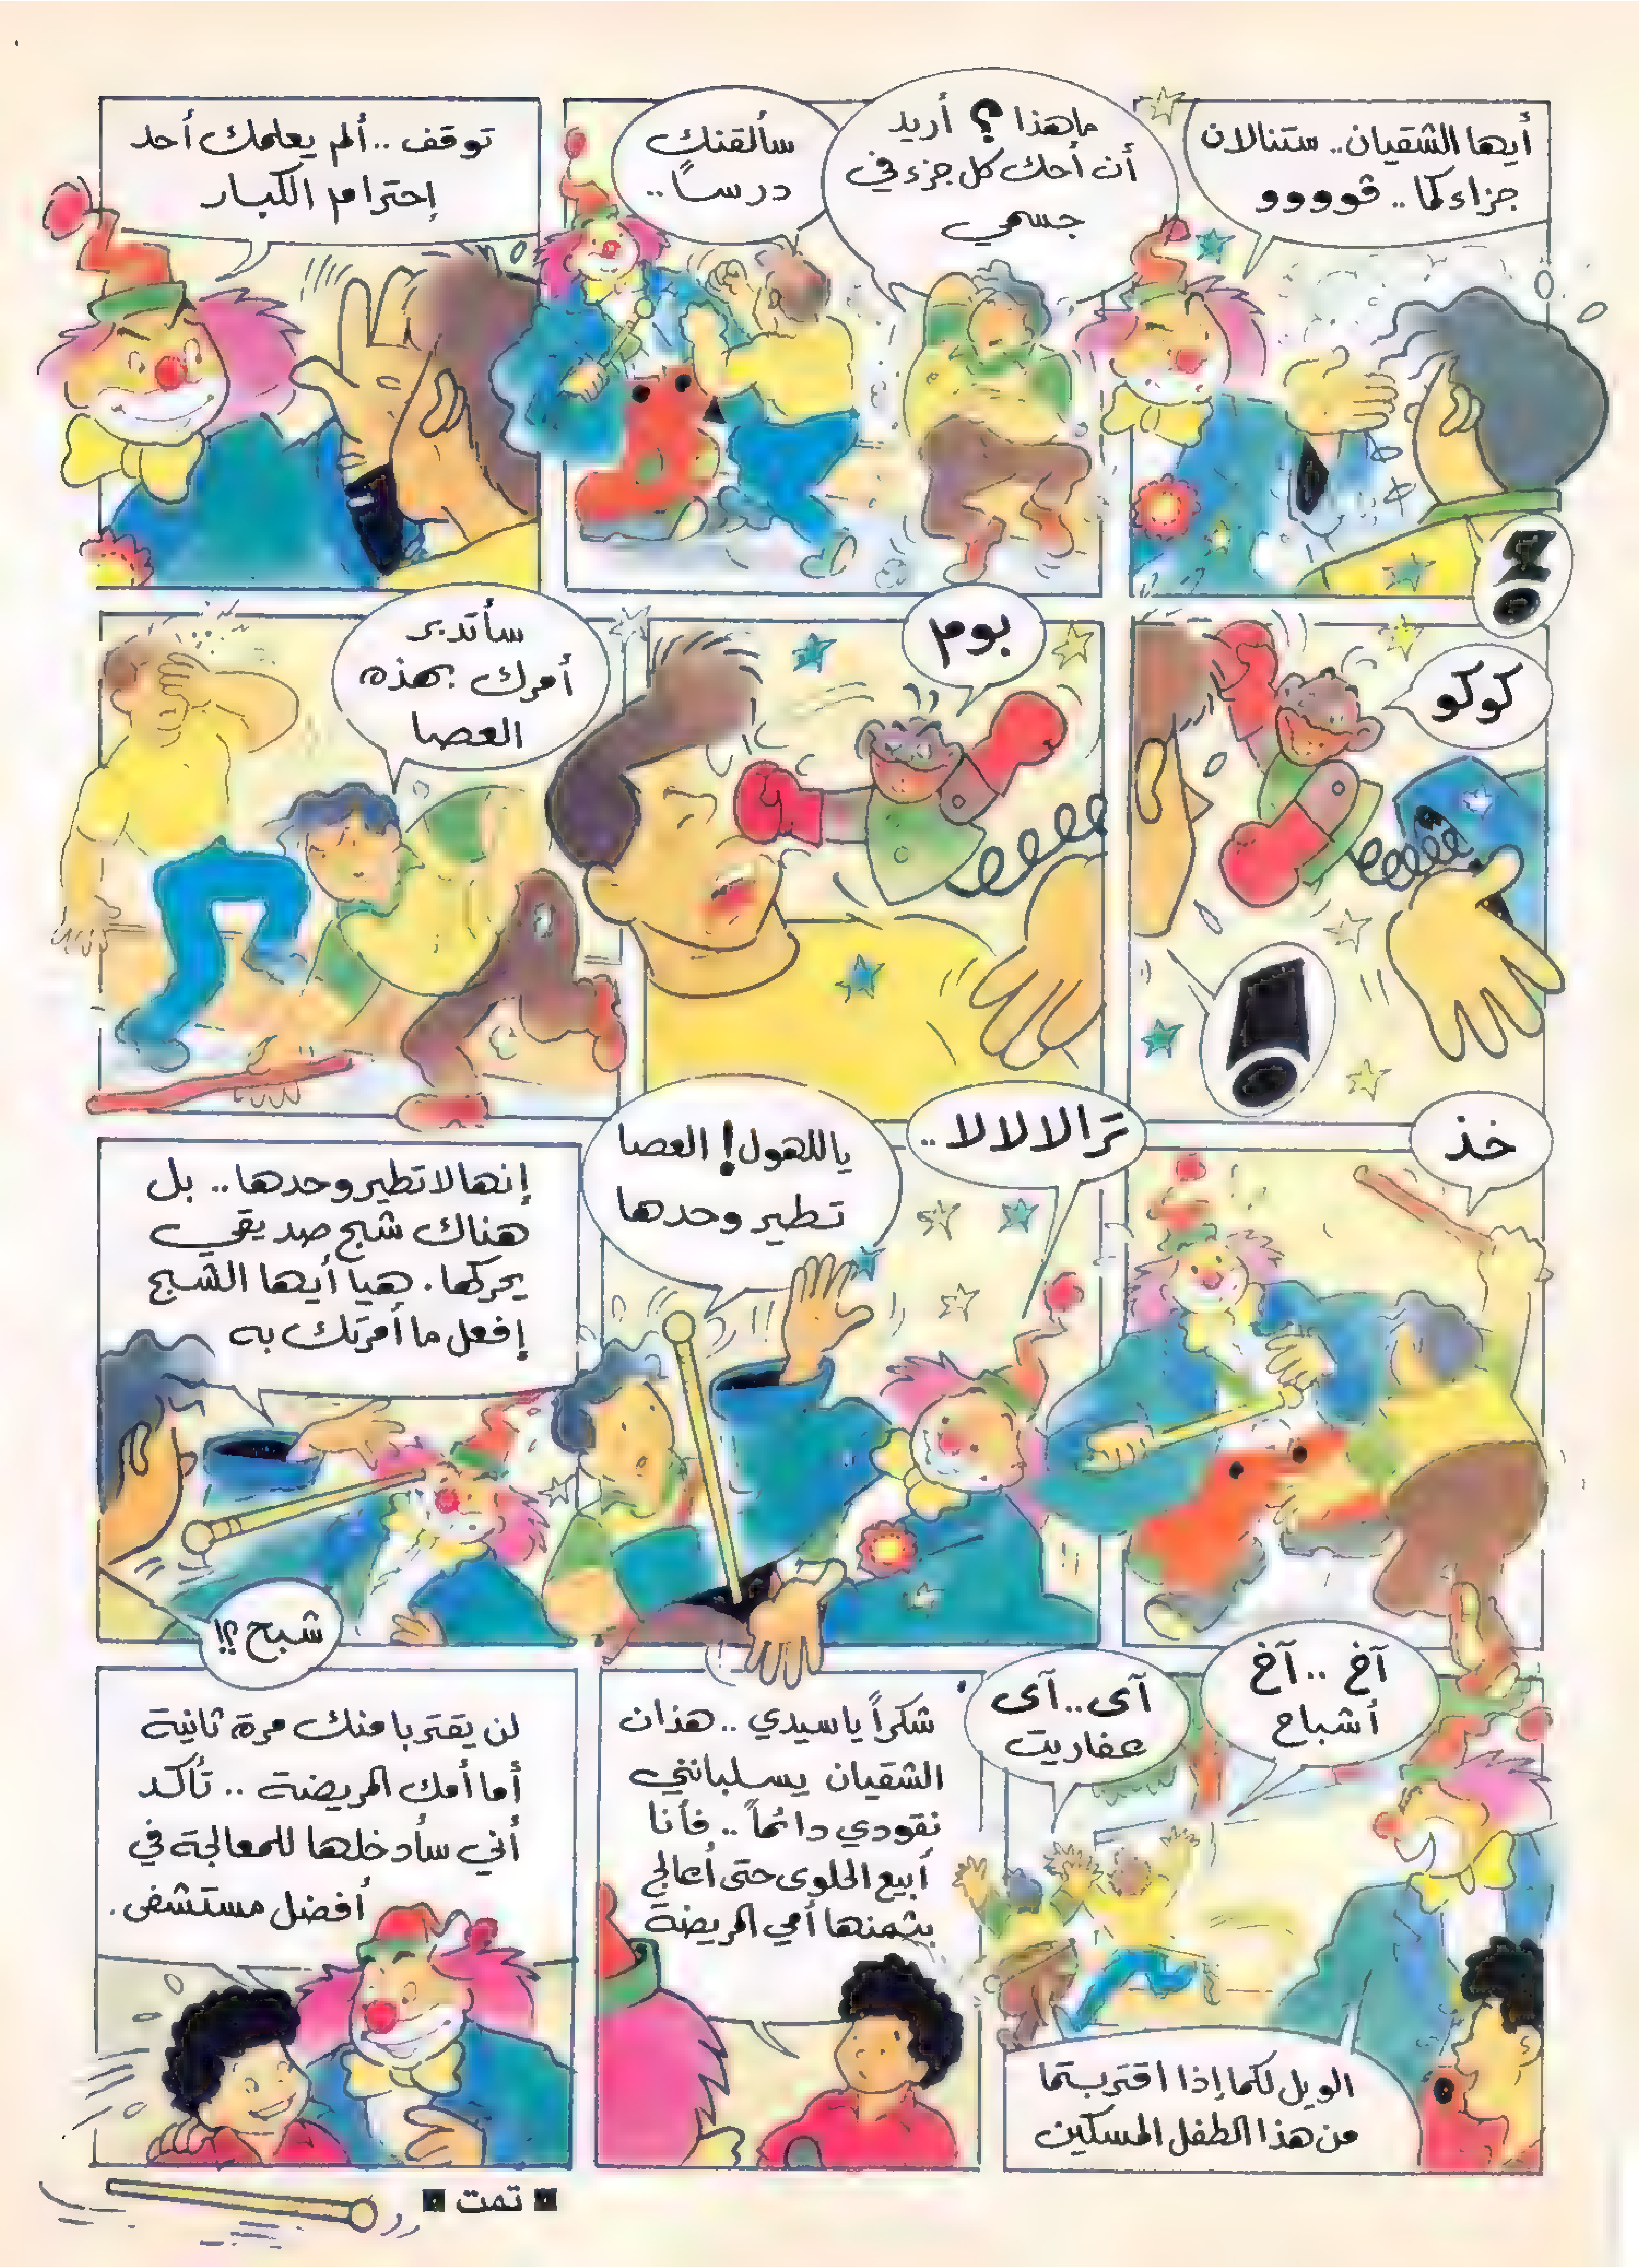 أيها الشقيان.. ستنالان
جزاءكما.. قوووو
؟!
ماهذا؟ أريد
أن أحك كل جزء في
جسمي
سألقنك
درساً..
توقف.. ألم يعلمك أحد
إحترام الكبار
كوكو
!
بوم
سأتدبر
أمرك بهذه
العصا
خذ
تَرالالالا..
ياللهول! العصا
تطير وحدها
إنها لاتطير وحدها.. بل
هناك شبح صديقي
يحركها. هيا أيها الشبح
إفعل ما أمرتك به
شبح؟!
آخ.. آخ
أشباح
آى..آى
عفاريت
الويل لكما إذا اقتربتما
من هذا الطفل المسكين
شكراً ياسيدي.. هذان
الشقيان يسلبانني
نقودي دائماً.. فأنا
أبيع الحلوى حتى أعالج
بثمنها أمي المريضة
لن يقتربا منك مرة ثانية
أما أمك المريضة.. تأكد
أني سأدخلها للمعالجة في
أفضل مستشفى.
■ تمت ■